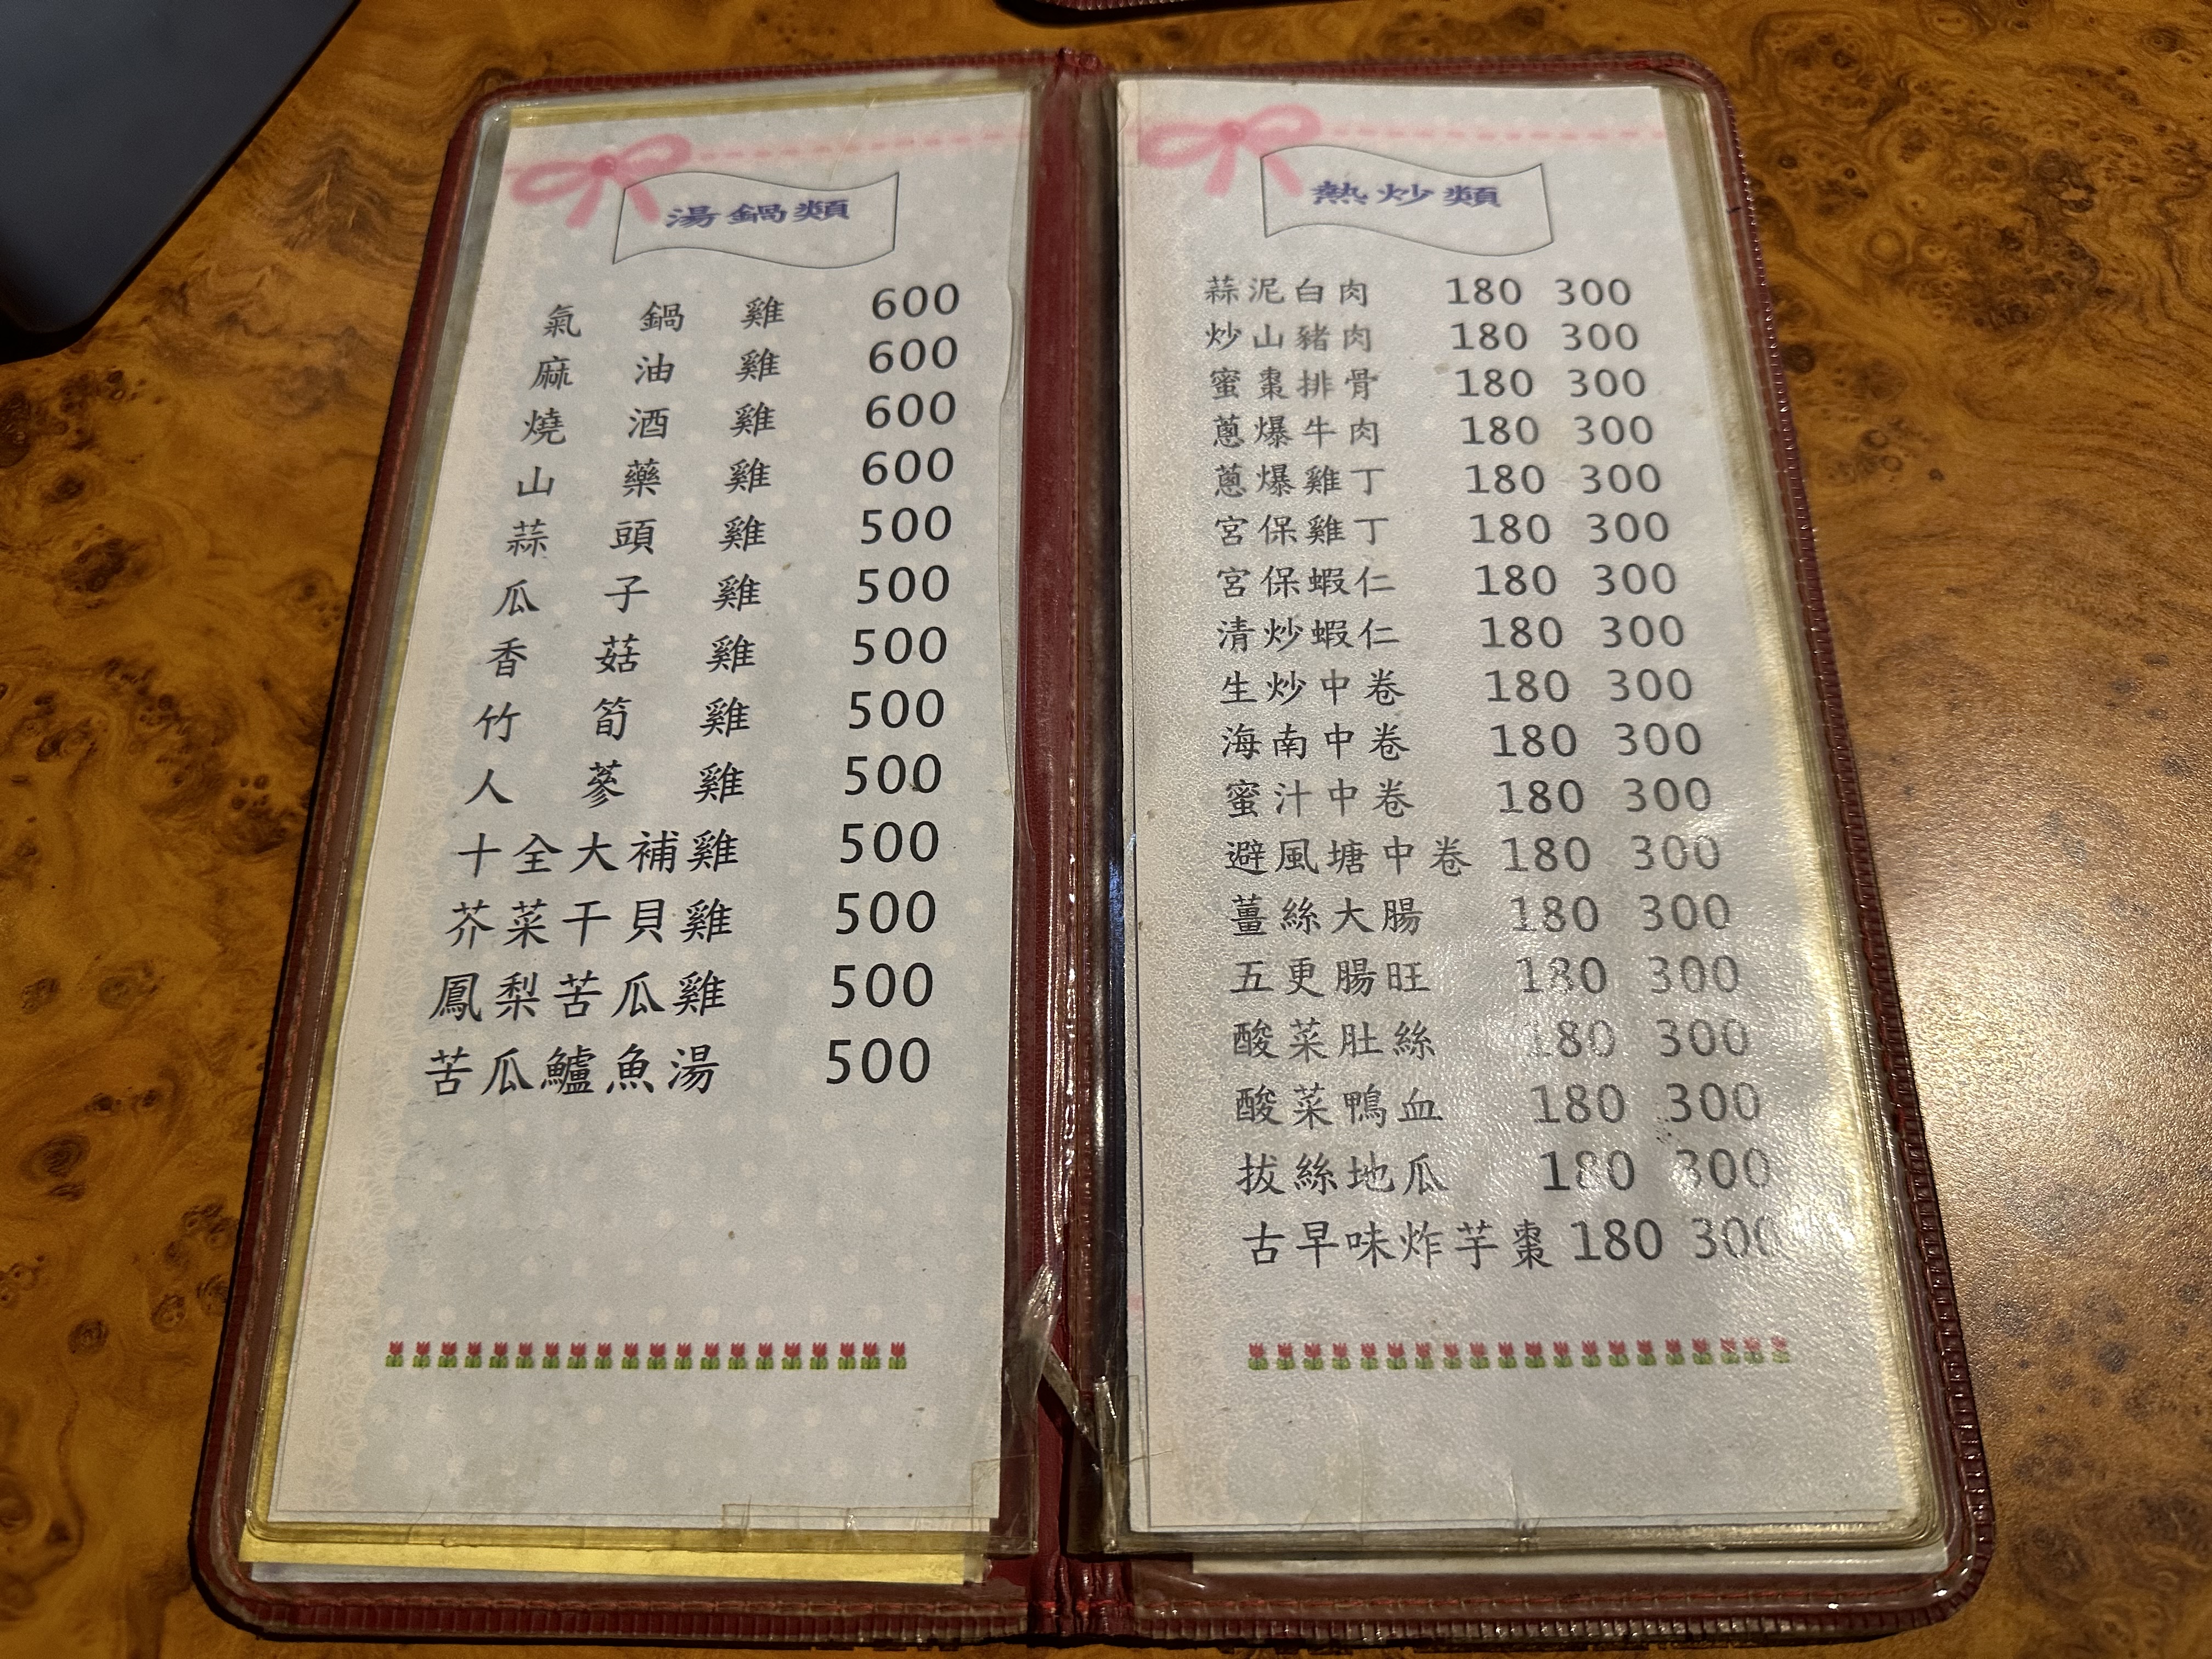 湯鍋類
氣鍋雞 600
麻油雞 600
燒酒雞 600
山藥雞 600
蒜頭雞 500
瓜子雞 500
香菇雞 500
竹筍雞 500
人蔘雞 500
十全大補雞 500
芥菜干貝雞 500
鳳梨苦瓜雞 500
苦瓜鱸魚湯 500
熱炒類
蒜泥白肉 180 300
炒山豬肉 180 300
蜜棗排骨 180 300
蔥爆牛肉 180 300
蔥爆雞丁 180 300
宮保雞丁 180 300
宮保蝦仁 180 300
清炒蝦仁 180 300
生炒中卷 180 300
海南中卷 180 300
蜜汁中卷 180 300
避風塘中卷 180 300
薑絲大腸 180 300
五更腸旺 180 300
酸菜肚絲 180 300
酸菜鴨血 180 300
拔絲地瓜 180 300
古早味炸芋棗 180 300